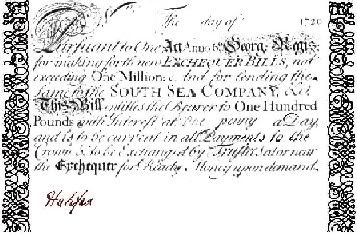 No The day of 1720
Pursuant to One Act Anno 6o Georgij Regis
for making forth new EXCHEQUER BILLS, not
exceeding One Million & And for lending the
same to the SOUTH SEA COMPANY, &ct
This Bill entitles the Bearer to One Hundred
Pounds with Interest at One penny a Day
and is to be current in all Payments to the
Crown & to be Exchanged by Trustees at or near
the Exchequer for Ready Money upon demand.
Halifax